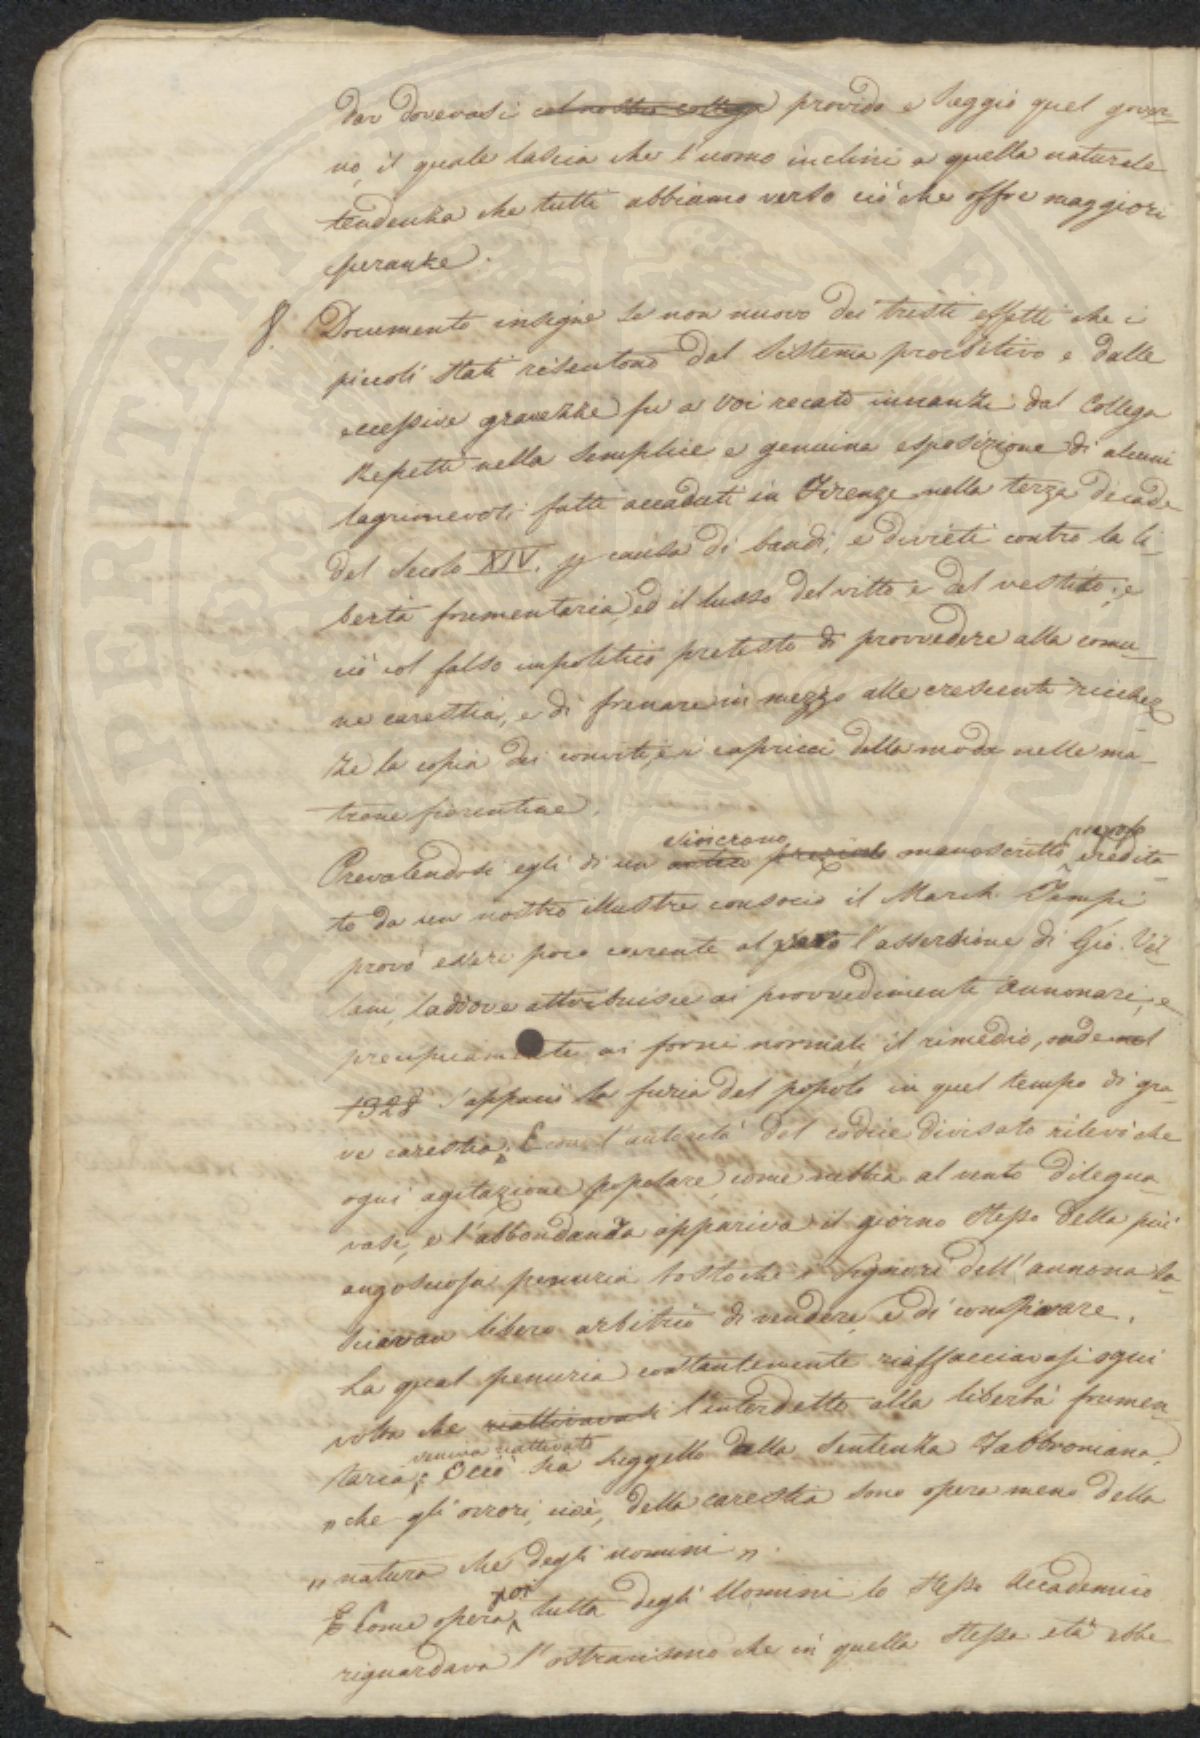 dar dovevasi col nostro collega provido e saggio quel gover-
no, il quale lascia che l'uomo inclini a quella naturale
tendenza che tutti abbiamo verso ciò che offre maggiori
speranze.
8. Documento insigne se non nuovo dei tristi effetti che i
piccoli stati risentono dal sistema proibitivo e dalle
eccessive gravezze fu a voi recato innanzi dal Collega
Repetti nella semplice e genuina esposizione di alcuni
lagrimevoli fatti accaduti in Firenze nella terza decade
del secolo XIV. p causa di bandi, e divieti contro la li-
bertà frumentaria, ed il lusso del vitto e del vestito; e
ciò col falso impolitico pretesto di provvedere alla comu-
ne carestia, e di frenare in mezzo alle crescenti ricchez
ze la copia dei conviti, e i capricci della moda nelle ma-
trone fiorentine.
sincrono prezioso
Prevalendosi egli di un antico prezioso manoscritto eredita
to da un nostro illustre consocio il March. Tempi
provò essere poco coerente al vero l'asserzione di Gio. Vil-
lani, laddove attribuisce ai provvedimenti annonari, e
precipuamente ai forni normali, il rimedio, onde nel
1328 s'appanò la furia del popolo in quel tempo di gra-
ve carestia. E con l'autorità del codice divisato rilevò che
ogni agitazione popolare, come nebbia al vento dilegua-
vasi, e l'abbondanza appariva il giorno stesso della più
angosciosa penuria tostochè i Signori dell'annona la-
sciavan libero arbitrio di vendere, e di comprare.
La qual penuria costantemente riaffacciavasi ogni
volta che riattivavasi l'interdetto alla libertà frumen-
veniva riattivato
taria; E ciò ha suggello dalla sentenza Fabbroniana,
" che gli orrori, cioè, della carestia sono opera meno della
" natura che degli uomini ".
poi
E Come opera tutta degli Uomini lo stesso Accademico
riguardava l'ostracismo che in quella stessa età ebbe